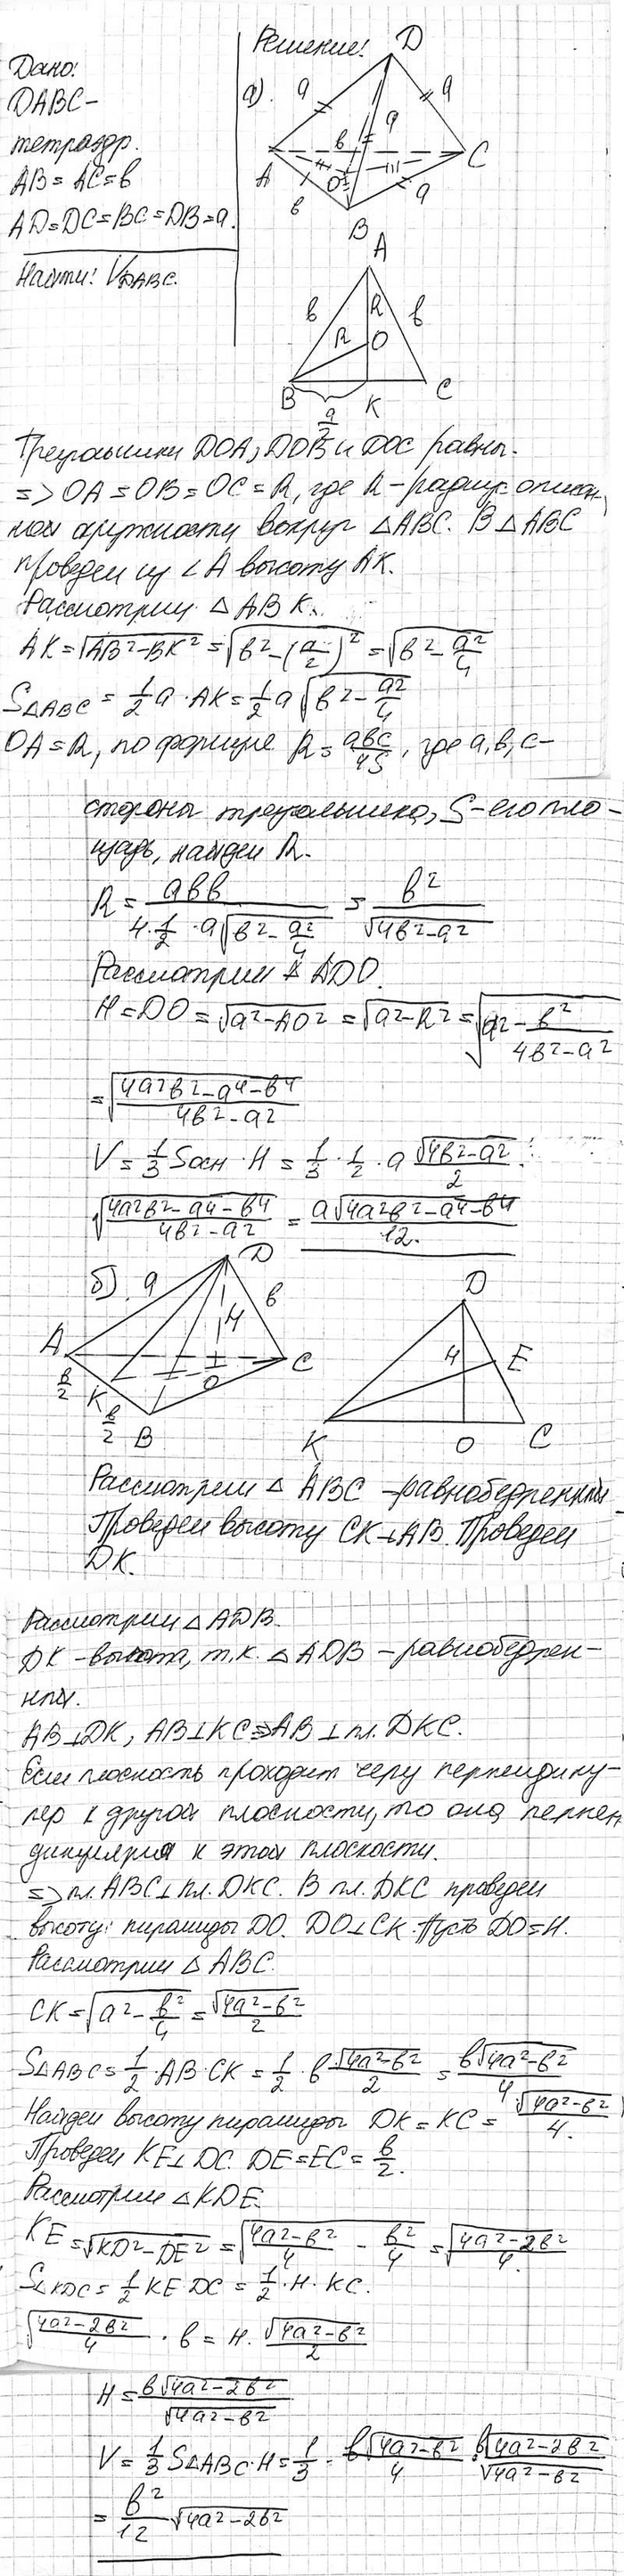 Дано:
DABC -
тетраэдр.
AB = AC = в
AD = DC = BC = DB = a.
Найти: V_DABC.
Решение:
а).
D
a
a
a
в
A
C
O
в
a
B
A
в
R
в
R
O
B
K
C
a/2
Треугольники DOA, DOB и DOC равны.
=> OA = OB = OC = R, где R - радиус описан-
ной окружности вокруг △ABC. В △ABC
проведем из ∠A высоту AK.
Рассмотрим △ABK.
AK = √(AB² - BK²) = √(в² - (a/2)²) = √(в² - a²/4)
S△ABC = 1/2 a · AK = 1/2 a √(в² - a²/4)
OA = R, по формуле R = aвc/4S, где a, в, c -
стороны треугольника, S - его пло-
щадь, найдем R.
R = aвв/(4 · 1/2 · a√(в² - a²/4)) = в²/√(4в² - a²)
Рассмотрим △ADO.
H = DO = √(a² - AO²) = √(a² - R²) = √(a² - в²/(4в² - a²))
= √((4a²в² - a⁴ - в⁴)/(4в² - a²))
V = 1/3 Sосн · H = 1/3 · 1/2 · a √(4в² - a²)/2 ·
√((4a²в² - a⁴ - в⁴)/(4в² - a²)) = a√(4a²в² - a⁴ - в⁴)/12.
б).
D
a
в
H
A
C
в/2
K
O
в/2
B
D
H
E
K
O
C
Рассмотрим △ABC - равнобедренный
Проведем высоту CK ⊥ AB. Проведем
DK.
Рассмотрим △ADB.
DK - высота, т.к. △ADB - равнобедрен-
ный.
AB ⊥ DK, AB ⊥ KC => AB ⊥ пл. DKC.
Если плоскость проходит через перпендику-
ляр к другой плоскости, то она перпен
дикулярна к этой плоскости.
=> пл. ABC ⊥ пл. DKC. В пл. DKC проведем
высоту пирамиды DO. DO ⊥ CK. Пусть DO = H.
Рассмотрим △ABC.
CK = √(a² - в²/4) = √(4a² - в²)/2
S△ABC = 1/2 · AB · CK = 1/2 · в √(4a² - в²)/2 = в√(4a² - в²)/4
Найдем высоту пирамиды DK = KC = √(4a² - в²)/4.
Проведем KE ⊥ DC. DE = EC = в/2.
Рассмотрим △KDE.
KE = √(KD² - DE²) = √((4a² - в²)/4 - в²/4) = √((4a² - 2в²)/4).
S△KDC = 1/2 KE · DC = 1/2 · H · KC.
√((4a² - 2в²)/4) · в = H · √(4a² - в²)/2
H = в√(4a² - 2в²)/√(4a² - в²)
V = 1/3 S△ABC · H = 1/3 · в√(4a² - в²)/4 · в√(4a² - 2в²)/√(4a² - в²)
= в²/12 √(4a² - 2в²)